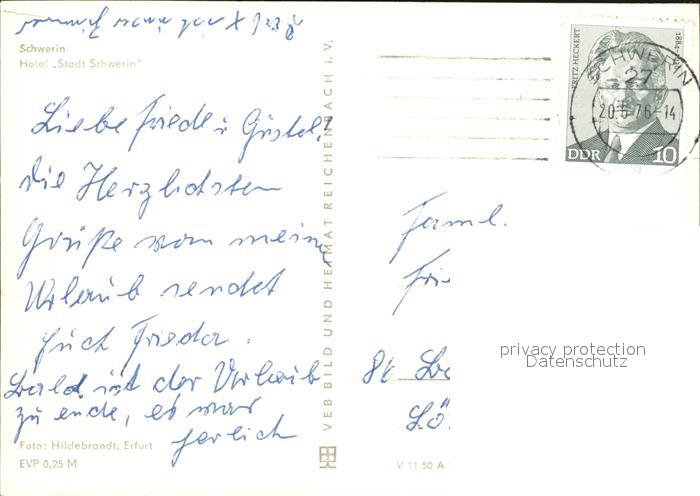 Schwerin
Hotel „Stadt Schwerin"
Liebe Friede u Gustel!
die Herzlichsten
Grüße von meinen
Urlaub sendet
Euch Frieda.
bald ist der Urlaub
zu ende, es war
herlich
Foto: Hildebrandt, Erfurt
EVP 0,25 M
VEB BILD UND HEIMAT REICHENBACH i. V.
V 11 50 A
FRITZ HECKERT
1884
DDR 10
SCHWERIN
27
20.6.76-14
a
Faml.
Frie
86
Lö
privacy protection
Datenschutz